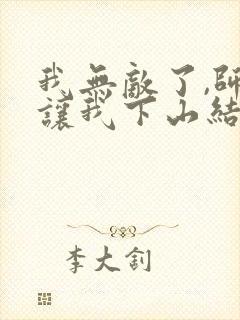 我無敵了,師
讓我下山結
李大釗